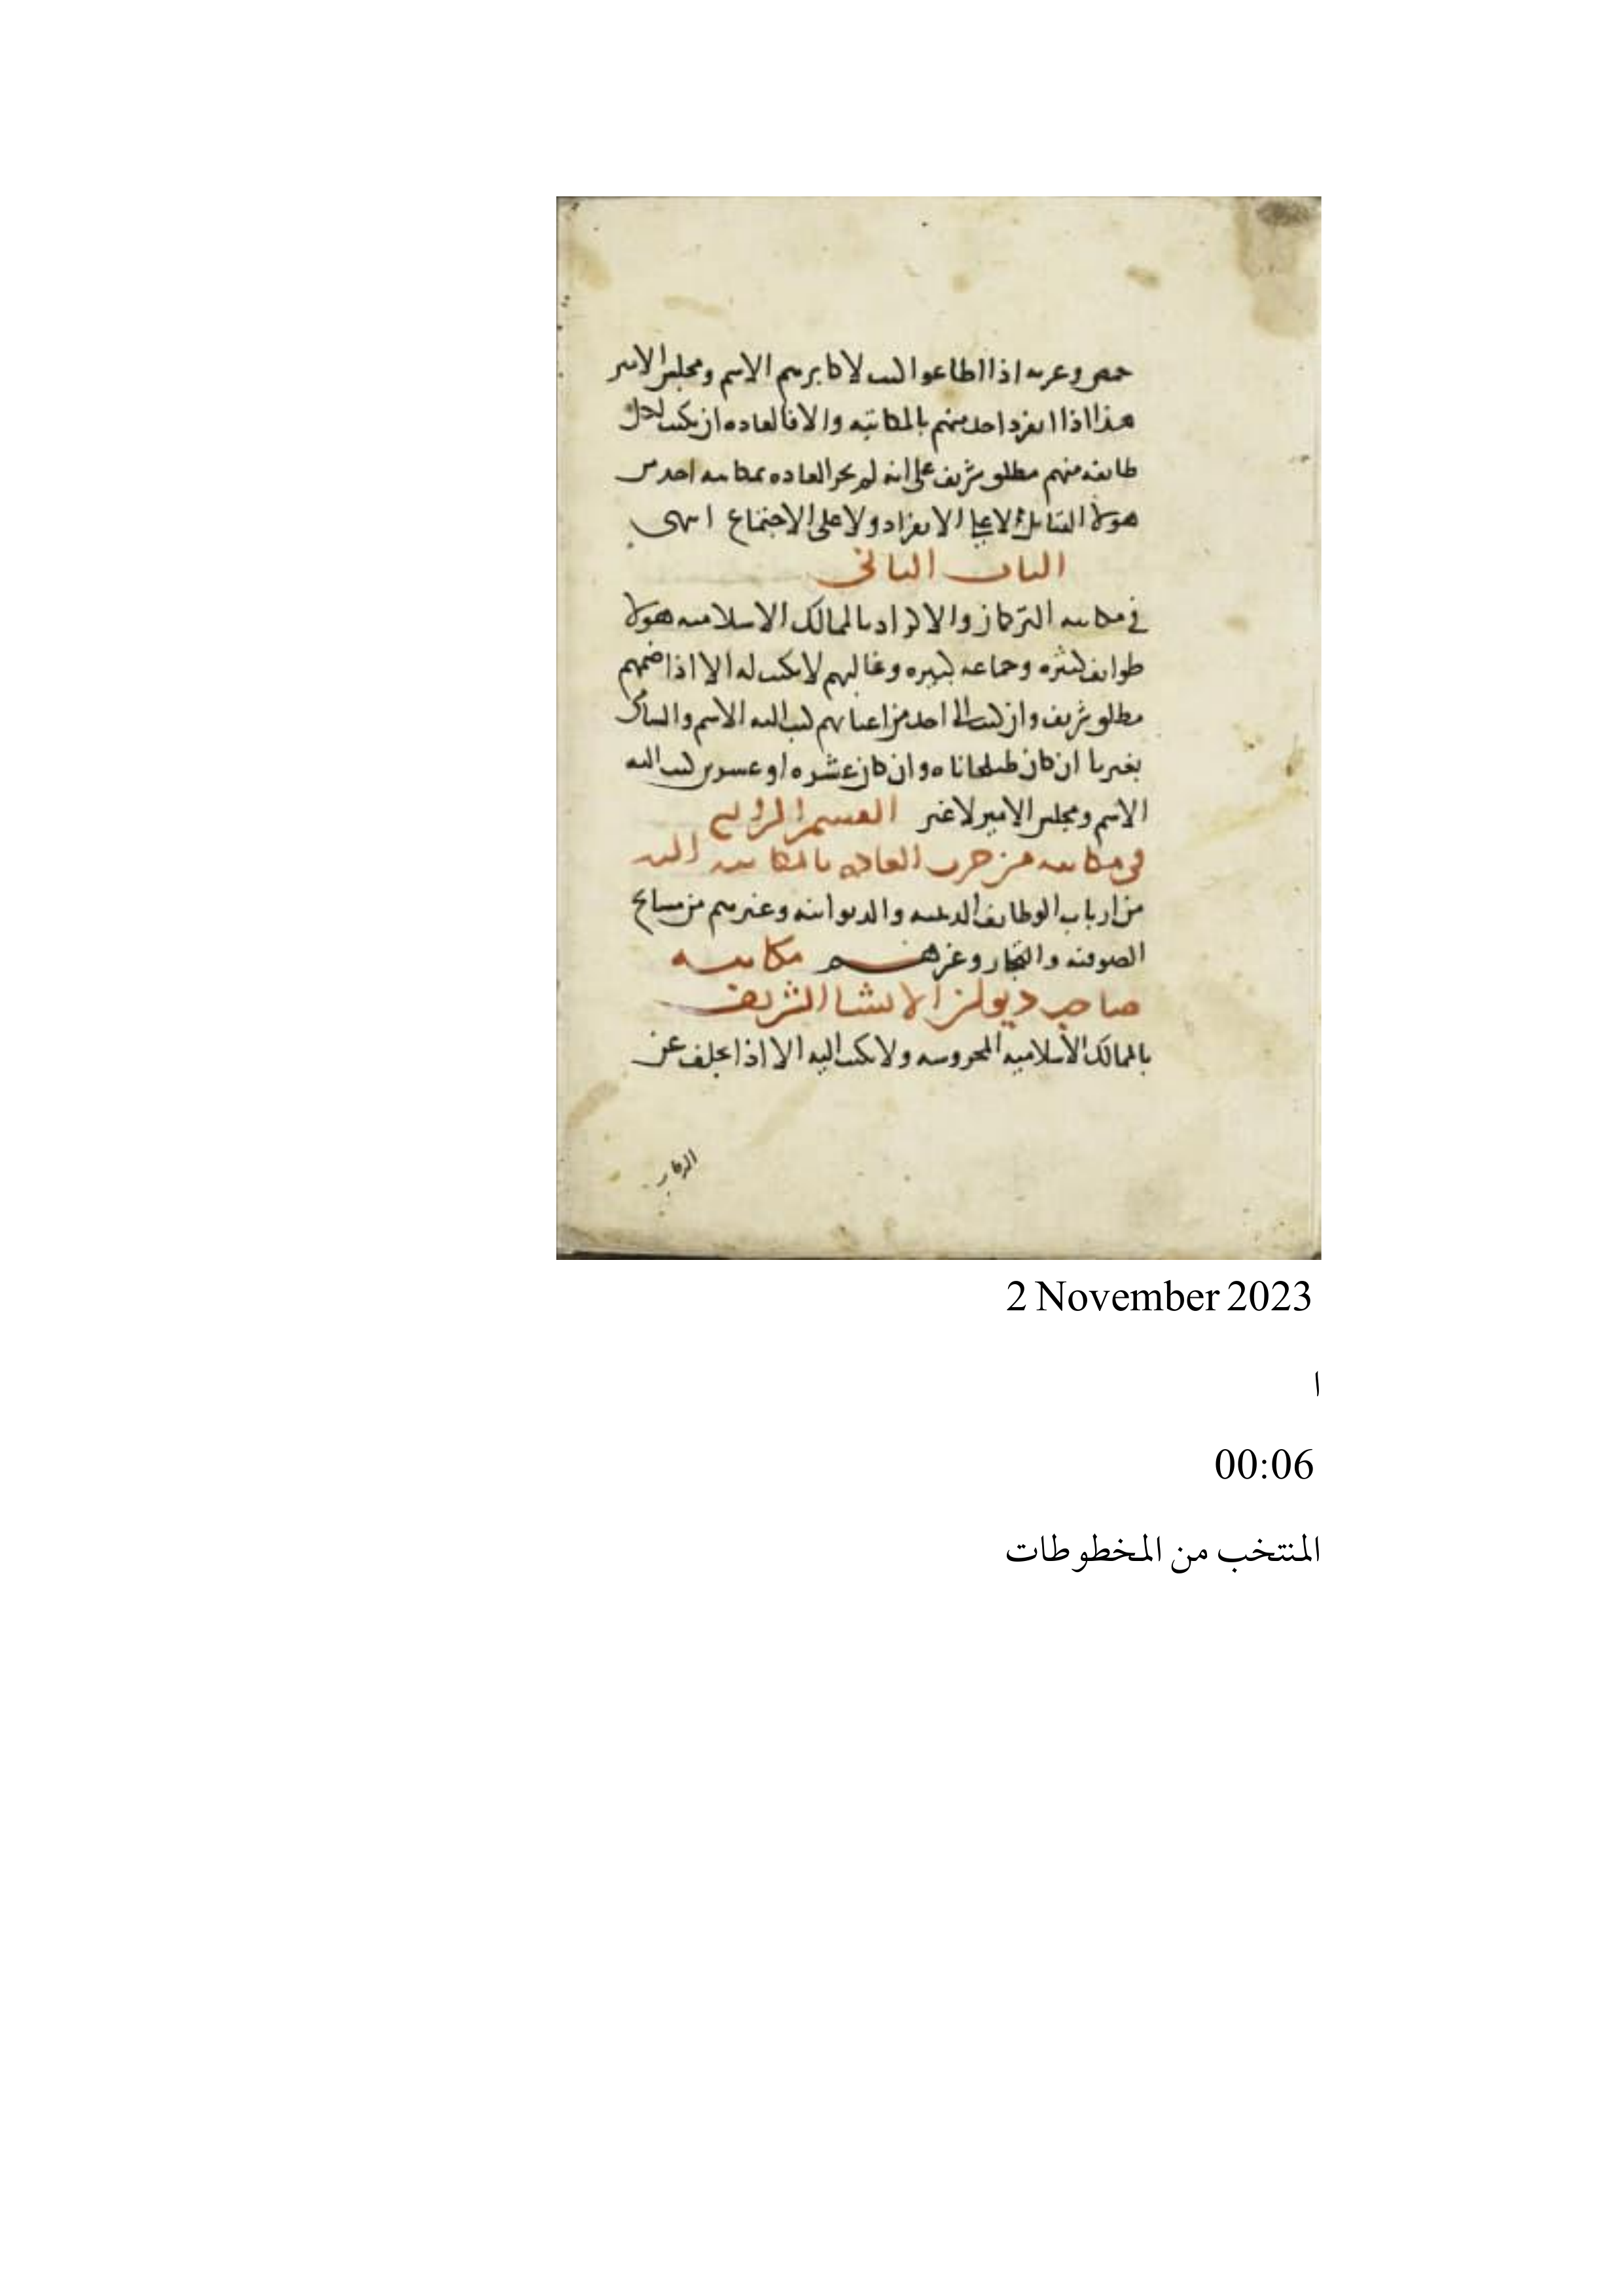 حمص وغيره اذا اطاعوا كتب لاكابرهم الاسم ومجلس الامير
هذا اذا انفرد احد منهم بالمكاتبه والا فالعاده ان يكتب لكل
طايفه منهم مطلق شريف على انه لم تجر العاده بمكاتبه احد من
هولا القبايل لا على الانفراد ولا على الاجتماع انتهى
الباب الثاني
في مكاتبه التركمان والاكراد بالممالك الاسلاميه هولا
طوايف كثيره وجماعه كبيره وغالبهم لا يكتب له الا اذا ضمهم
مطلق شريف وان كتب الى احد من اعيانهم كتب اليه الاسم والسامي
بغير يا ان كان طبلخاناه وان كان عشره او عشرين كتب اليه
الاسم ومجلس الامير لا غير القسم الرابع
في مكاتبه من جرت العاده بالمكاتبه اليه
من ارباب الوظايف الدينيه والديوانيه وغيرهم من مشايخ
الصوفيه والتجار وغيرهم مكاتبه
صاحب ديوان الانشا الشريف
بالممالك الاسلاميه المحروسه ولا يكتب اليه الا اذا تخلف عن
الركاب
2 November 2023
ا
00:06
المنتخب من المخطوطات